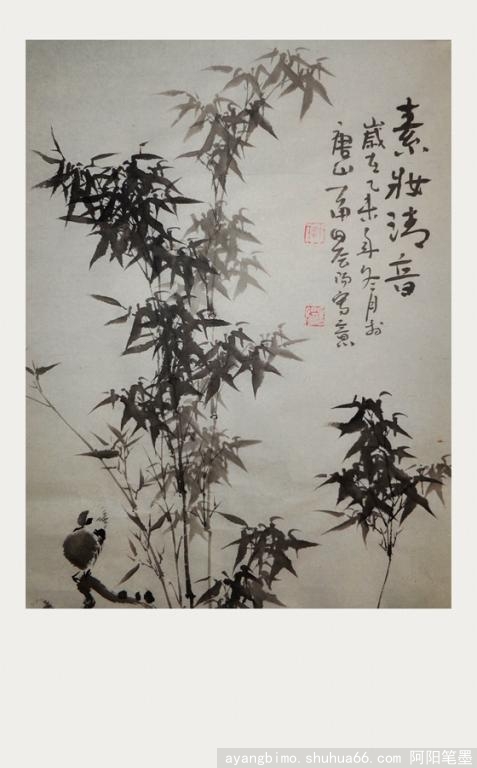 素妝清音
歲在乙未年冬月於
唐山
寫意
ayangbimo.shuhua66.com 阿阳笔墨